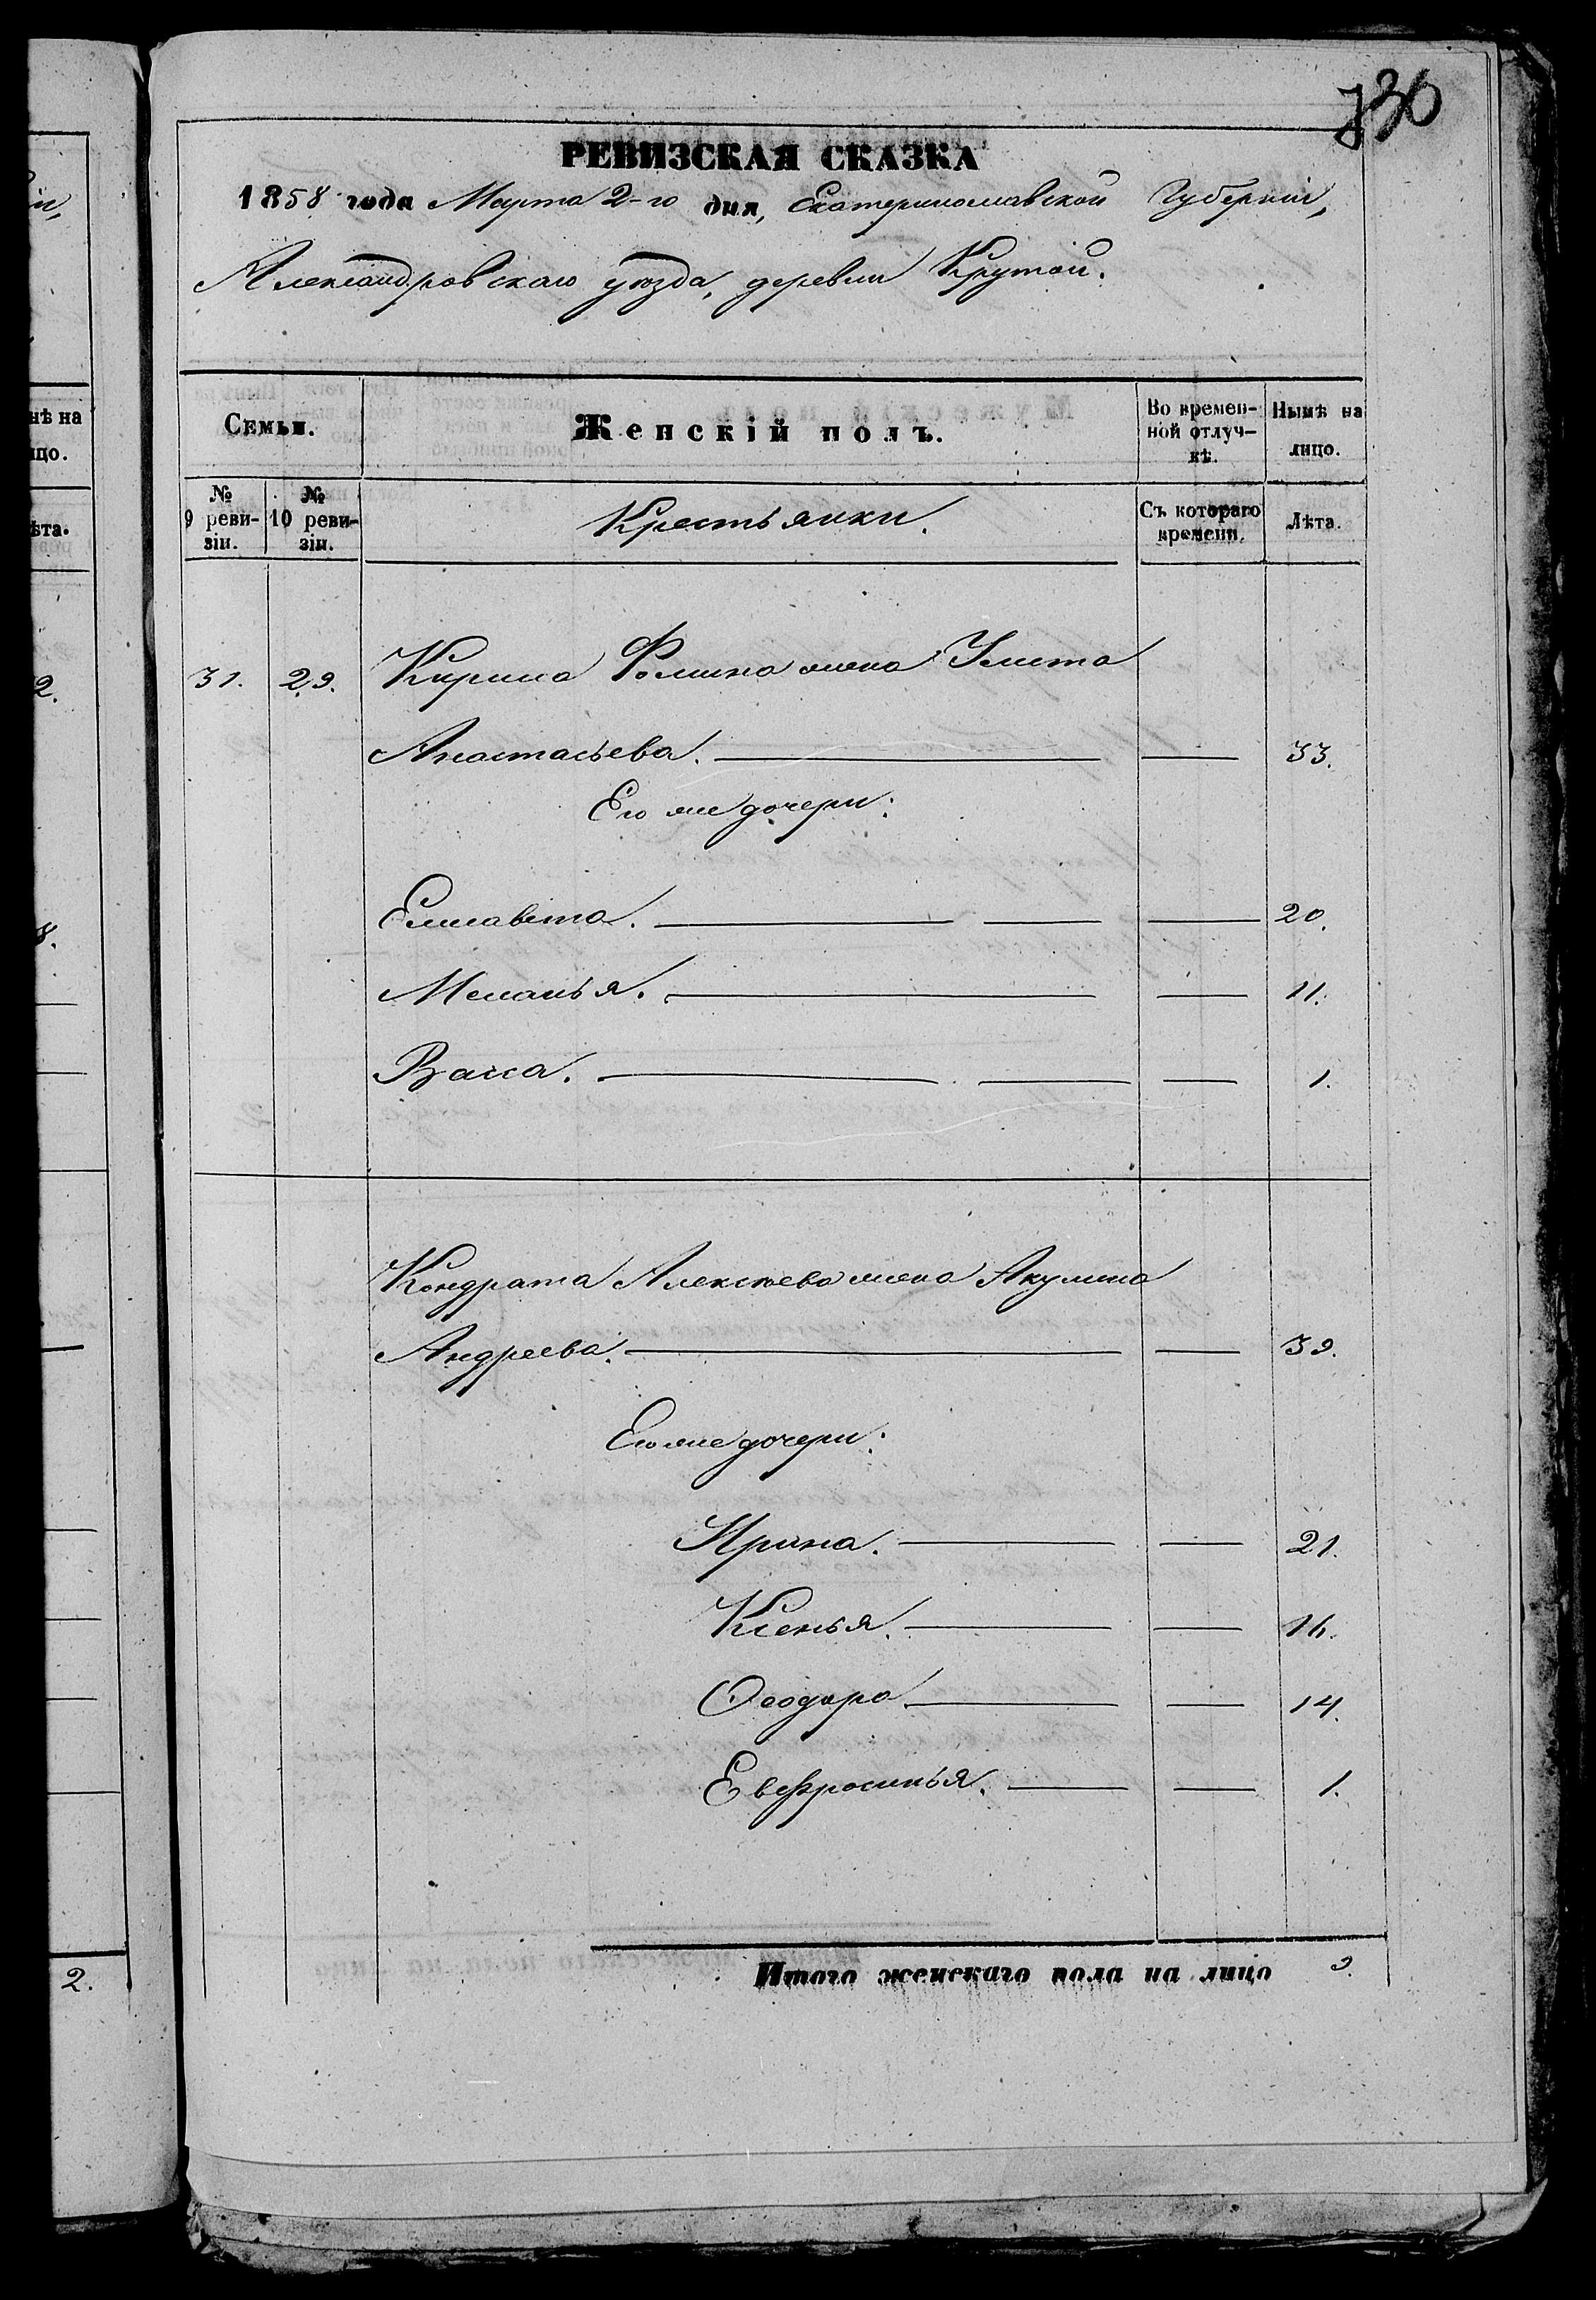 736
РЕВИЗСКАЯ СКАЗКА
1858 года Марта 2-го дня, Екатеринославской Губерніи,
Александровскаго уѣзда, деревни Крутой.
Семьи.
Женскій полъ.
Во времен-
ной отлуч-
кѣ.
Нынѣ на
лицо.
№
9 реви-
зіи.
№
10 реви-
зіи.
Крестьянки.
Съ котораго
времени.
Лѣта.
31. 29. Кирила Фомина жена Улита
Анастасьева. 33.
Его же дочери:
Елисавета. 20.
Меланья. 11.
Васса. 1.
Кондрата Алексѣева жена Акулина
Андреева. 39.
Его же дочери:
Ирина. 21.
Ксенья. 16.
Ѳеодора. 14.
Евфросинья. 1.
Итого женскаго пола на лицо 9.
нѣ на
цо.
ѣта.
2.
8.
2.